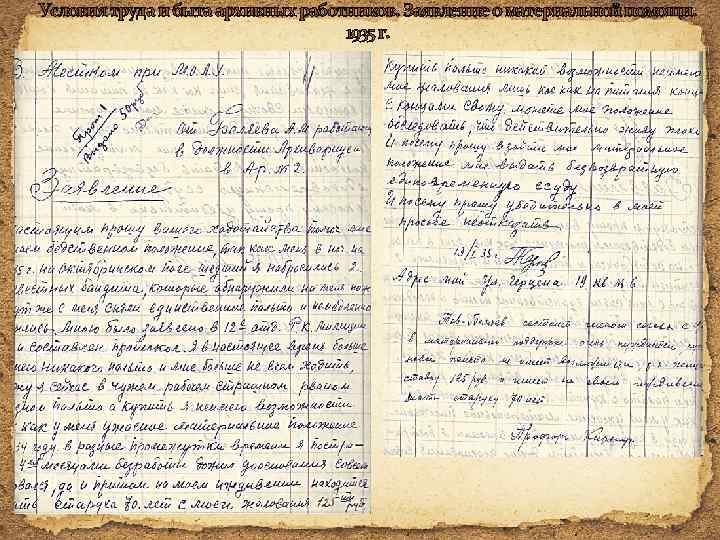 Условия труда и быта архивных работников. Заявление о материальной помощи.
1935 г.
Местком при М.О.А.У.
Выдано 50 руб
От А.М. работающ
в должности Архивариуса
в Ар. № 2.
Заявление
Настоящим прошу вашего ходатайства помочь мне
моем бедственном положение, так как меня в ночь на
35 г. на октябринском поле шедший я набросились 2.
неизвестных бандита, которые обнаружили на меня нож
тут же с меня сняли единственное пальто и немедленно
мною было заявлено в 12ое отд. Р.К. милиции
и составлен протокол. Я в настоящее время больше
него никакого пальто и мне больше не в чем ходить,
хожу я сейчас в чужом рабочем старином рваном
пальто а купить я неимею возможности
как у меня ужасное материальное положение
34 году в разные промежутки времени я постра-
4 ый месяцами безработы
да и притом на моем иждивении находится
мать старуха 70. лет с моего жалования 125 руб
Купить пальто никакой возможности неимею
мое жалования лишь кое как на питания
С концами свожу можете мое положение
обследовать, что действительно живу плохо
И посему прошу войти в мое материальное
положение или выдать безвозвратную
единовременную ссуду
И посему прошу убедительно в моей
просьбе неотказать
19/I 35 г.
Адрес мой ул. Герцена 19 кв № 6
Тов. состоит членом союза с
в материальной поддержке очень нуждается
ставку 125 руб. и имеет на своем иждивении
мать старуху 70 лет